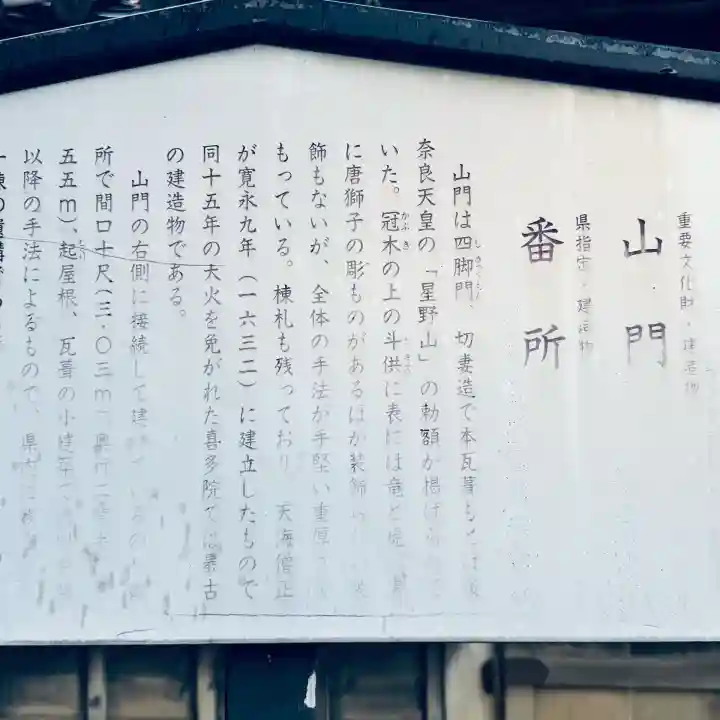 重要文化財・建造物
山門
県指定・建造物
番所
山門は四脚門、切妻造で本瓦葺もとは後
奈良天皇の「星野山」の勅額が掲げられて
いた。冠木の上の斗供に表には竜と虎、裏
に唐獅子の彫ものがあるほか装飾
飾もないが、全体の手法が手堅い重厚
もっている。棟札も残っており、天海僧正
が寛永九年(一六三二)に建立したもので
同十五年の大火を免がれた喜多院では最古
の建造物である。
山門の右側に接続して建
所で間口十尺(三・〇三m)、奥行二
五五m)、起屋根、瓦葺の小建築で
以降の手法によるもので、県
一棟の遺構で